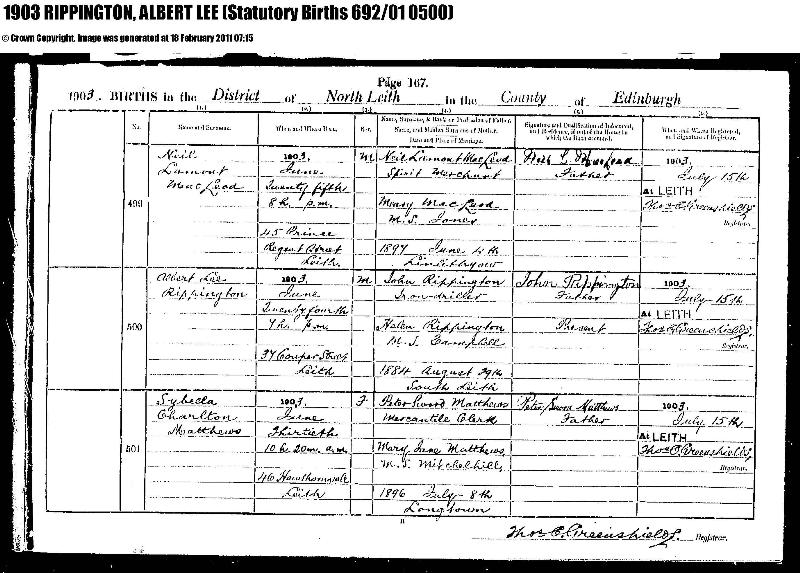 1903 RIPPINGTON, ALBERT LEE (Statutory Births 692/01 0500)
© Crown Copyright. Image was generated at 18 February 2011 07:15
Page 167.
1903. BIRTHS in the District of North Leith in the County of Edinburgh
No. Name and Surname. When and Where Born. Sex. Name, Surname, & Rank or Profession of Father. Name, and Maiden Surname of Mother. Date and Place of Marriage. Signature and Qualification of Informant, and Residence, if out of the House in which the Birth occurred. When and Where Registered, and Signature of Registrar.
499
Neil
Lamont
MacLeod
1903,
June
Twenty fifth
8 h. p.m.
45 Prince
Regent Street
Leith
M
Neil Lamont MacLeod
Spirit Merchant
Mary MacLeod
M.S. Jones
1897 June 4th
Linlithgow
Father
1903,
July 15th
At LEITH
Thos C. Greenshields,
Registrar.
500
Albert Lee
Rippington
1903,
June
Twenty fourth
7 h. p.m.
37 Couper Street
Leith
M
John Rippington
Iron-driller
Helen Rippington
M.S. Campbell
1884 August 29th
South Leith
John Rippington
Father
Present
1903,
July 15th
At LEITH
Thos C. Greenshields,
Registrar.
501
Sybella
Charlton
Matthews
1903,
June
Thirtieth
10 h. 20 m. a.m.
46 Hawthornvale
Leith
F
Peter Sword Matthews
Mercantile Clerk
Mary Jane Matthews
M.S. Mitchelhill
1896 July 8th
Longtown
Peter Sword Matthews
Father
1903,
July 15th
At LEITH
Thos C. Greenshields,
Registrar.
Thos C. Greenshields. Registrar.